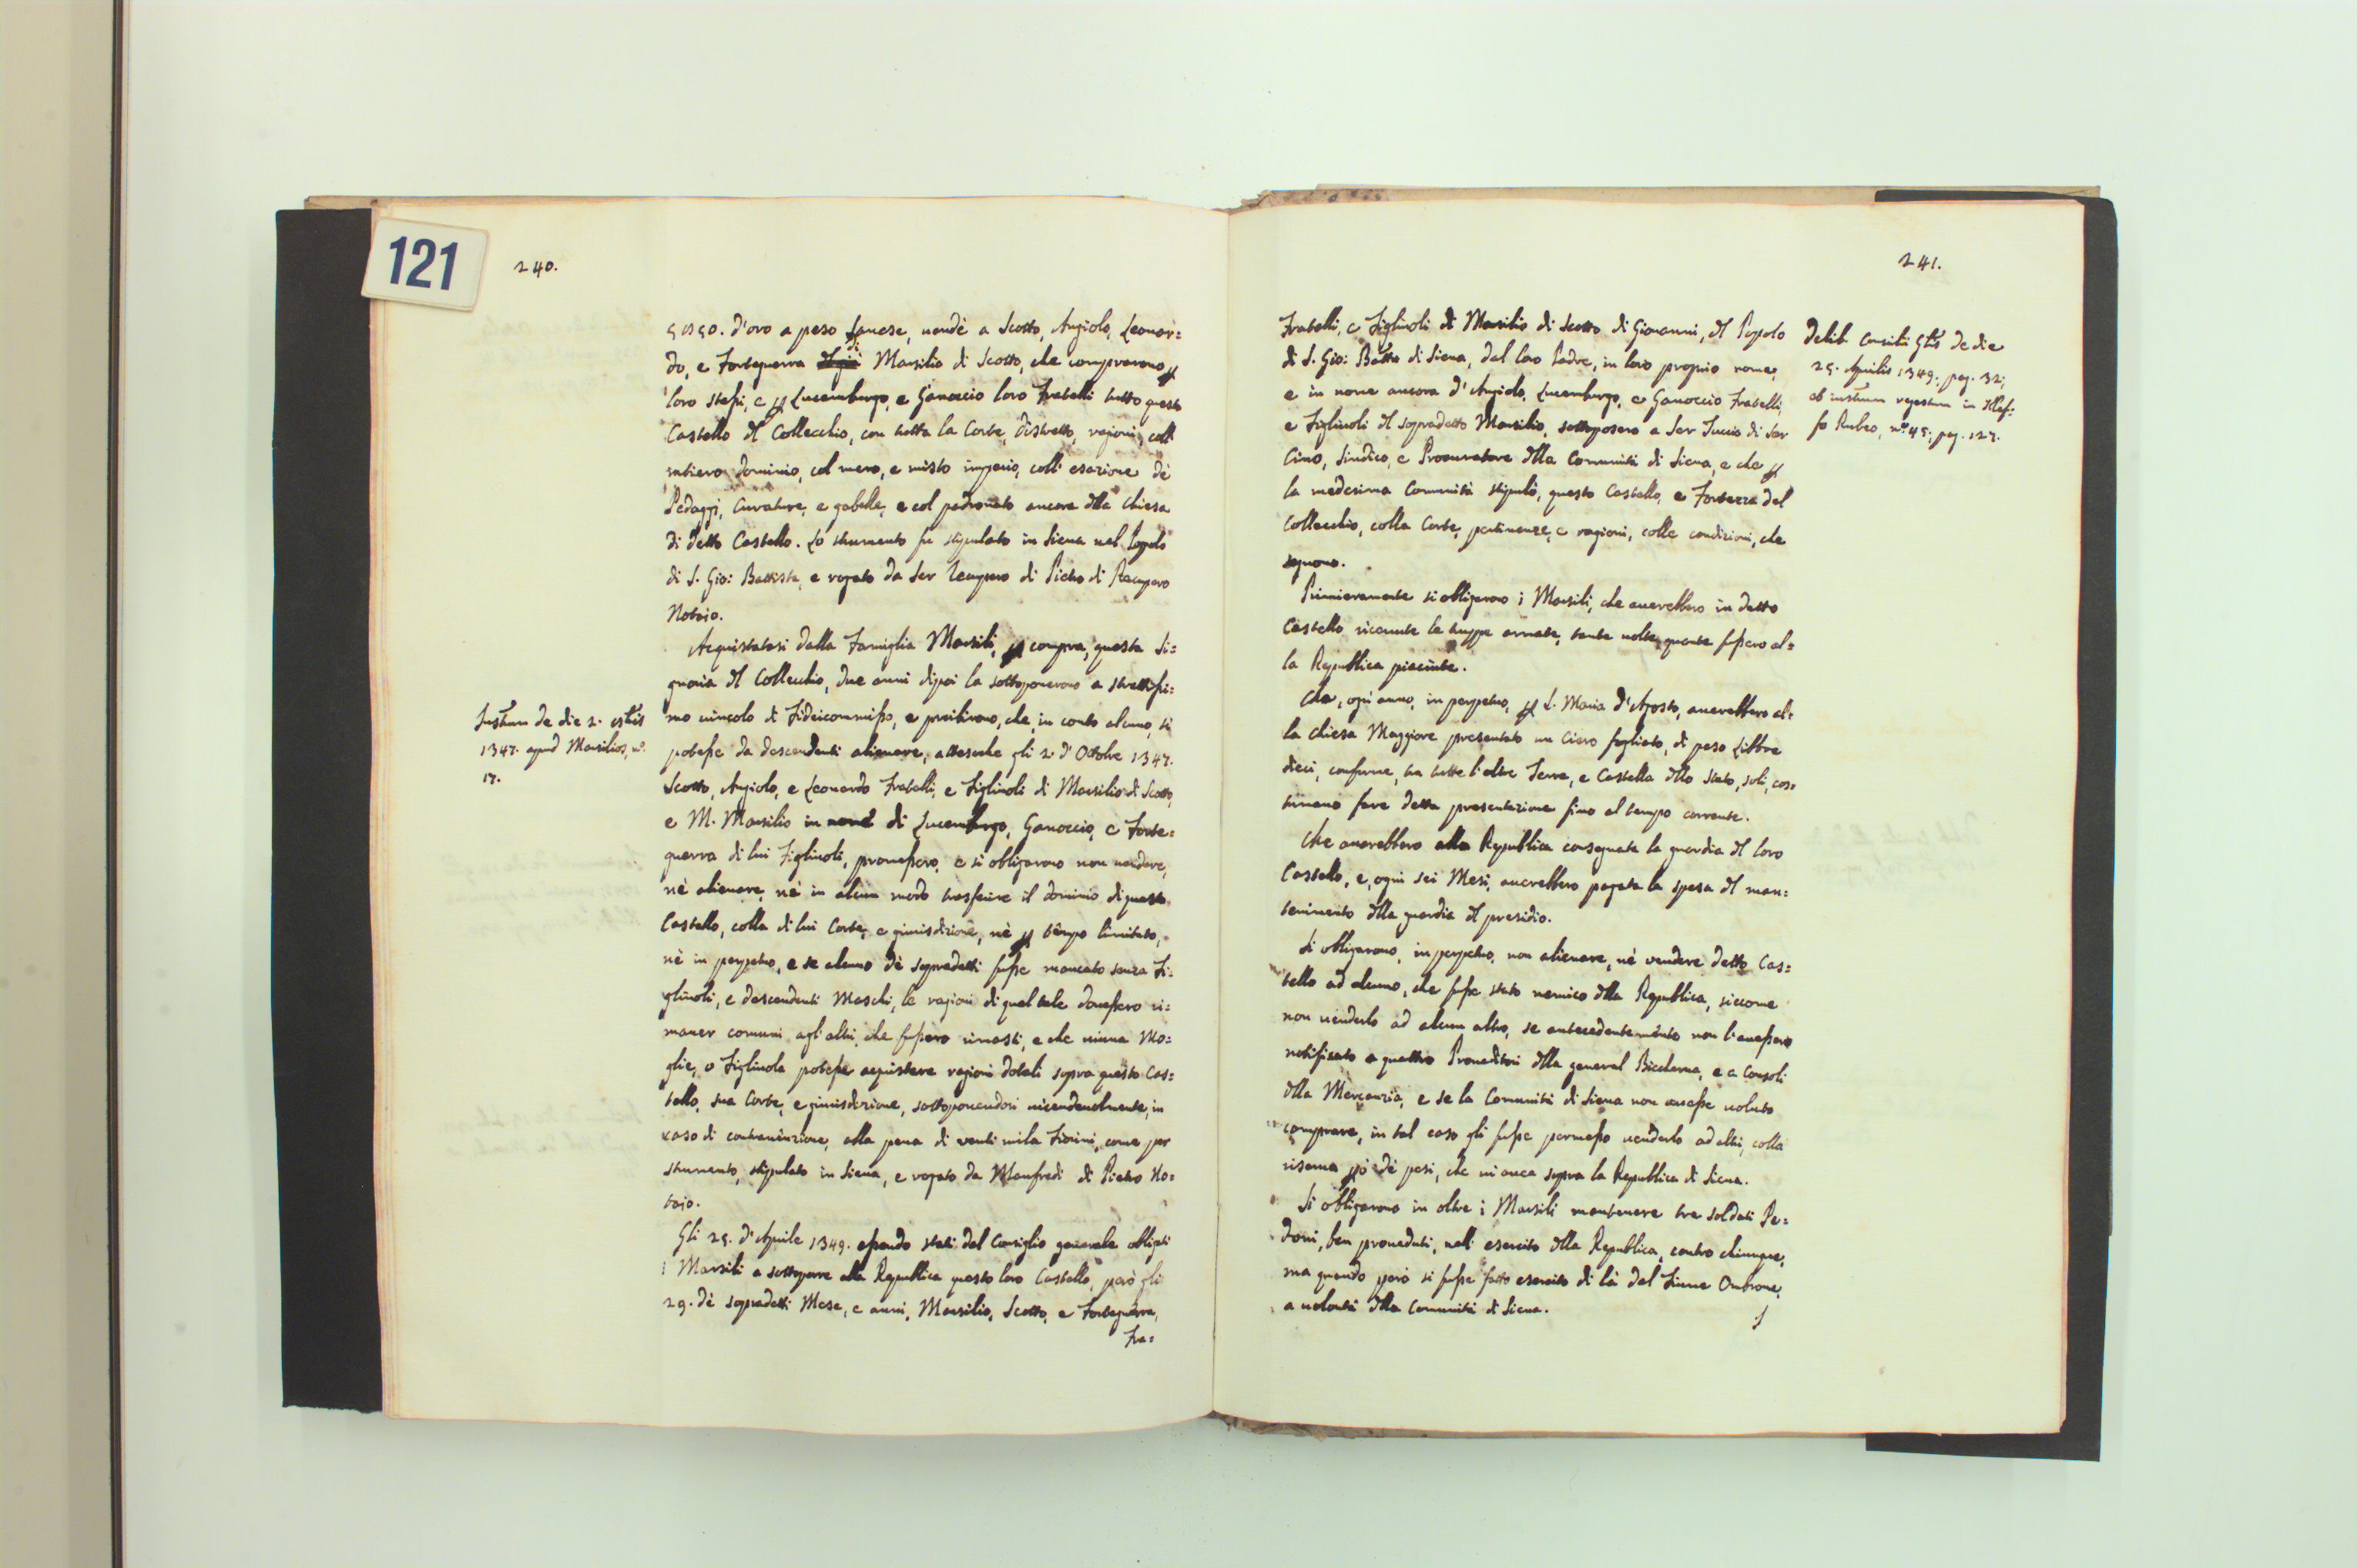 121
240.
5050. d'oro a peso sanese, uendè a Scotto, Angiolo, Leonar=
do, e Forteguerra di Marsilio di Scotto, che comprarono p
loro stessi, e p Lucemburgo, e Ganoccio loro Fratelli tutto questo
Castello dl Collecchio, con tutta la Corte, distretto, ragioni, coll'
intiero dominio, col mero, e misto imperio, coll' esazione dè
Pedaggi, Curature, e gabelle, e col padronato ancora dlla Chiesa
di detto Castello. Lo strumento fu stipulato in Siena nel Popolo
di S. Gio: Battista, e rogato da Ser Recupero di Pietro di Recupero
Notaio.
Acquistatasi dalla Famiglia Marsili, p compra, questa Si=
gnoria dl Collecchio, due anni dipoi la sottoponerono a strettissi=
mo uincolo di Fideicommisso, e proibirono, che, in conto alcuno, si
potesse da descendenti alienare, attesoche gli 2 d'Ottobre 1347.
Scotto, Angiolo, e Leonardo Fratelli, e Figliuoli di Marsilio di Scotto,
e M. Marsilio in nome di Lucemburgo, Ganoccio, e Forte=
guerra di lui Figliuoli, promessero, e si obligarono non uendere,
nè alienare, nè in alcun modo trasferire il dominio di questo
Castello, colla di lui Corte, e giurisdizione, nè p tempo limitato,
nè in perpetuo, e se alcuno dè sopradetti fusse mancato senza Fi=
gliuoli, e descendenti Maschi, le ragioni di quel tale douessero ri=
maner comuni agl'altri, che fussero rimasti, e che niuna Mo=
glie, o Figliuola potesse acquistare ragioni dotali sopra questo Cas=
tello, sua Corte, e giurisdizione, sottoponendosi uicendeuolmente, in
caso di contrauenzione, alla pena di uenti mila Fiorini, come per
strumento, stipulato in Siena, e rogato da Manfredi di Pietro No=
taio.
Gli 25. d'Aprile 1349. essendo stati dal Consiglio generale obligati
i Marsili a sottoporre alla Republica questo loro Castello, però gli
29. dè sopradetti Mese, e anni, Marsilio, Scotto, e Forteguerra,
Fra=
Instum de die 2. 8bris
1347. apud Marsilios, n.
17.
241.
Fratelli, e Figliuoli di Marsilio di Scotto di Giovanni, dl Popolo
di S. Gio: Batta di Siena, dal loro Padre, in loro proprio nome,
e in nome ancora d'Angiolo, Lucemburgo, e Ganoccio Fratelli,
e Figliuoli dl sopradetto Marsilio, sottoposero a Ser Tuccio di Ser
Cino, Sindico, e Procuratore dlla Comunità di Siena, e che p
la medesima Comunità stipulò, questo Castello, e Fortezza del
Collecchio, colla Corte, pertinenze, e ragioni, colle condizioni, che
seguono.
Primieramente si obligarono i Marsili, che auerebbero in detto
Castello riceuute le truppe armate, tante uolte, quante fussero al=
la Republica piaciute.
Che, ogni anno, in perpetuo, p S. Maria d'Agosto, auerebbero al=
la Chiesa Maggiore presentato un Ciero fogliato, di peso Libbre
dieci, conforme, tra tutte l'altre Terre, e Castella dllo Stato, soli, cos=
tumano fare detta presentazione fino al tempo corrente.
Che auerebbero alla Republica consegnata la guardia dl loro
Castello, e, ogni sei Mesi, auerebbero pagata la spesa dl man=
tenimento dlla guardia dl presidio.
Si obligarono, in perpetuo, non alienare, nè vendere detto Cas=
tello ad alcuno, che fusse stato nemico dlla Republica, siccome
non uenderlo ad alcun altro, se antecedentemente non l'auessero
notificato a quattro Proueditori dlla general Biccherna, e a Consoli
dlla Mercanzia, e se la Comunità di Siena non auesse uoluto
comprare, in tal caso gli fusse permesso uenderlo ad altri, colla
riserua pò dè pesi, che ui aueua sopra la Republica di Siena.
Si obligarono in oltre i Marsili mantenere tre soldati Pe=
doni, ben proueduti, nell' esercito dlla Republica, contro chiunque,
ma quando però si fusse fatto esercito di là dal Fiume Ombrone,
a uolontà dlla Comunità di Siena.
Delib. Consilii Glis de die
25. Aprilis 1349. pag. 32;
ob instum regestum in Klef:
fo Rubeo, n° 45; pag. 127.